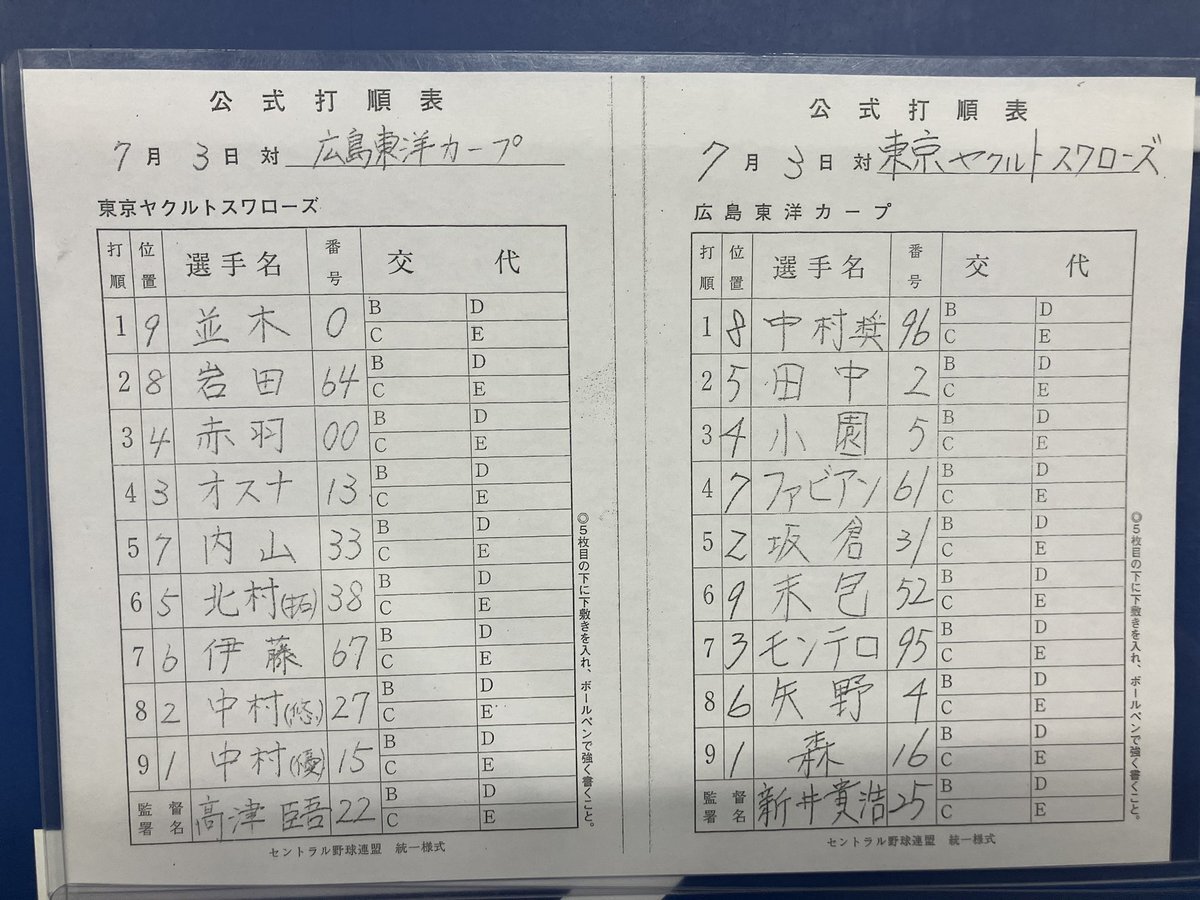 公式打順表
7月3日対 広島東洋カープ
東京ヤクルトスワローズ
打順 位置 選手名 番号 交代
1 9 並木 0 B D C E
2 8 岩田 64 B D C E
3 4 赤羽 00 B D C E
4 3 オスナ 13 B D C E
5 7 内山 33 B D C E
6 5 北村(拓) 38 B D C E
7 6 伊藤 67 B D C E
8 2 中村(悠) 27 B D C E
9 1 中村(優) 15 B D C E
監督署名 高津臣吾 22 B D C E
◎5枚目の下に下敷きを入れ、ボールペンで強く書くこと。
セントラル野球連盟 統一様式
公式打順表
7月3日対 東京ヤクルトスワローズ
広島東洋カープ
打順 位置 選手名 番号 交代
1 8 中村奨 96 B D C E
2 5 田中 2 B D C E
3 4 小園 5 B D C E
4 7 ファビアン 61 B D C E
5 2 坂倉 31 B D C E
6 9 末包 52 B D C E
7 3 モンテロ 95 B D C E
8 6 矢野 4 B D C E
9 1 森 16 B D C E
監督署名 新井貴浩 25 B D C E
◎5枚目の下に下敷きを入れ、ボールペンで強く書くこと。
セントラル野球連盟 統一様式